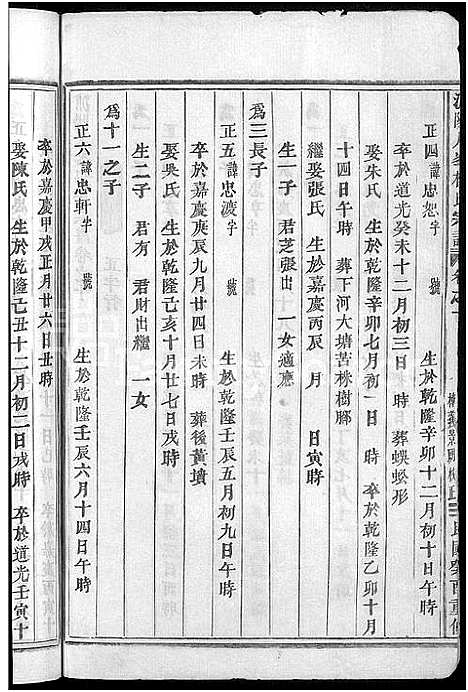 正四諱忠恕字 號 生於乾隆辛卯十二月初十日午時
卒於道光癸未十二月初三日時 葬蜈蚣形
娶朱氏 生於乾隆辛卯七月初一日 時 卒於乾隆乙卯十月
十四日午時 葬下河大塘苦株樹脚
繼娶張氏 生於嘉慶丙辰 月 日寅時
為三長子 君芝張出 一女適應
正五諱忠渡字 號 生於乾隆壬辰五月初九日午時
卒於嘉慶庚辰九月廿四日未時 葬後黃墳
娶吳氏 生於乾隆己亥十月廿七日戌時
為一 生二子 君有 君財出繼 一女
為十一之子
正六諱忠軒字 號 生於乾隆壬辰六月十四日午時
卒於嘉慶甲戌正月廿六日丑時
娶陳氏 生於乾隆己丑十二月初二日戌時 卒於道光壬寅十